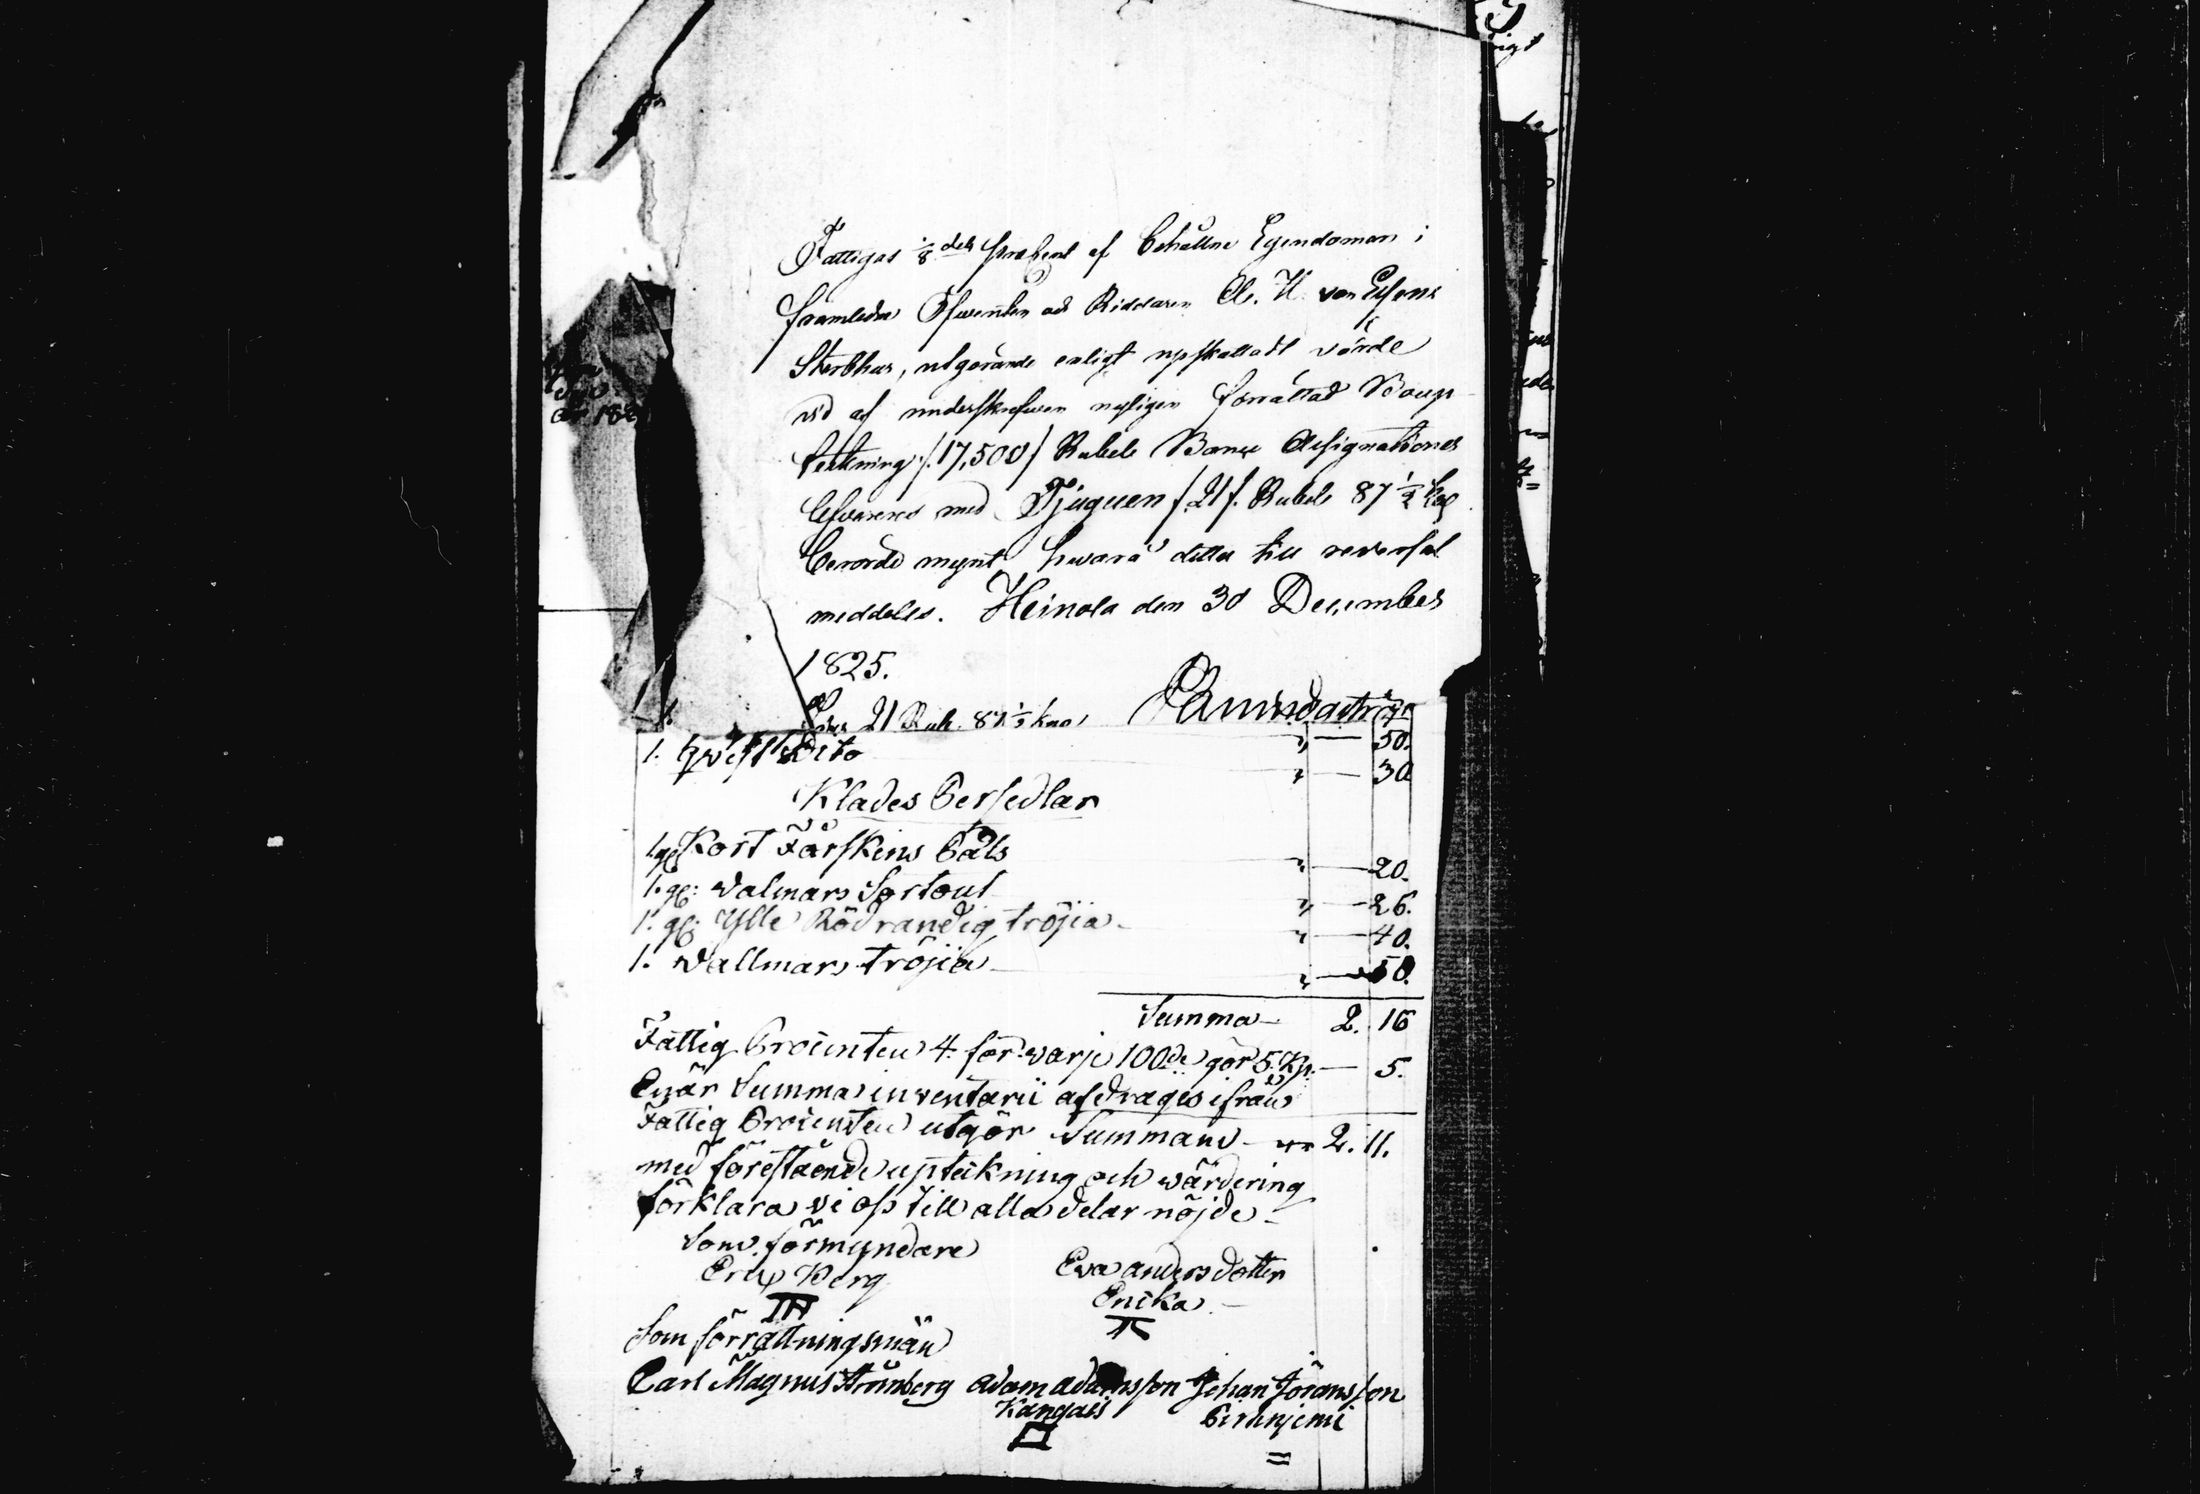 Fattigas 1/8 dels procent af behållne Egendomen i
framledne Öfwersten och Riddaren Cl. H. von Essens
Sterbhus, utgörande enligt uppskattadt värde
vid af undertecknad nyligen förrättad Boup-
teckning /:17,500/ Rubels Banco Assignationer
lefvereres med Tjuguen /:21/. Rubel 87 1/2 kop
berörde mynt, hwarå detta till reversal
meddeles. Heinola den 30 December
1825.
21 Rub. 87 1/2 kop.
1. hvitt Dito " — 50.
" — 30
Klädes Persedlar
1. gl. Kort Fårskins Päls " — 20.
1. gl: Valmars Sortout " — 26.
1. gl: Ylle Rödrandig tröjia " — 40.
1. Vallmars Tröjia " — 50.
Summa — 2. 16
Fattig Procenten 4. för varje 100de gör 5. Kp. — 5.
Enär Summa inventarii afdrages ifrån
Fattig Procenten utgör Summan — 2. 11.
med förestående upteckning och wärdering
förklara vi oss till alla delar nöjde —
Som förmyndare
Eric Berg
Eva andersdotter
Enika
Som förrättningsmän
Carl Magnus Strömberg Adam Adamsson Johan Jöransson
Kangais Pirhnjemi